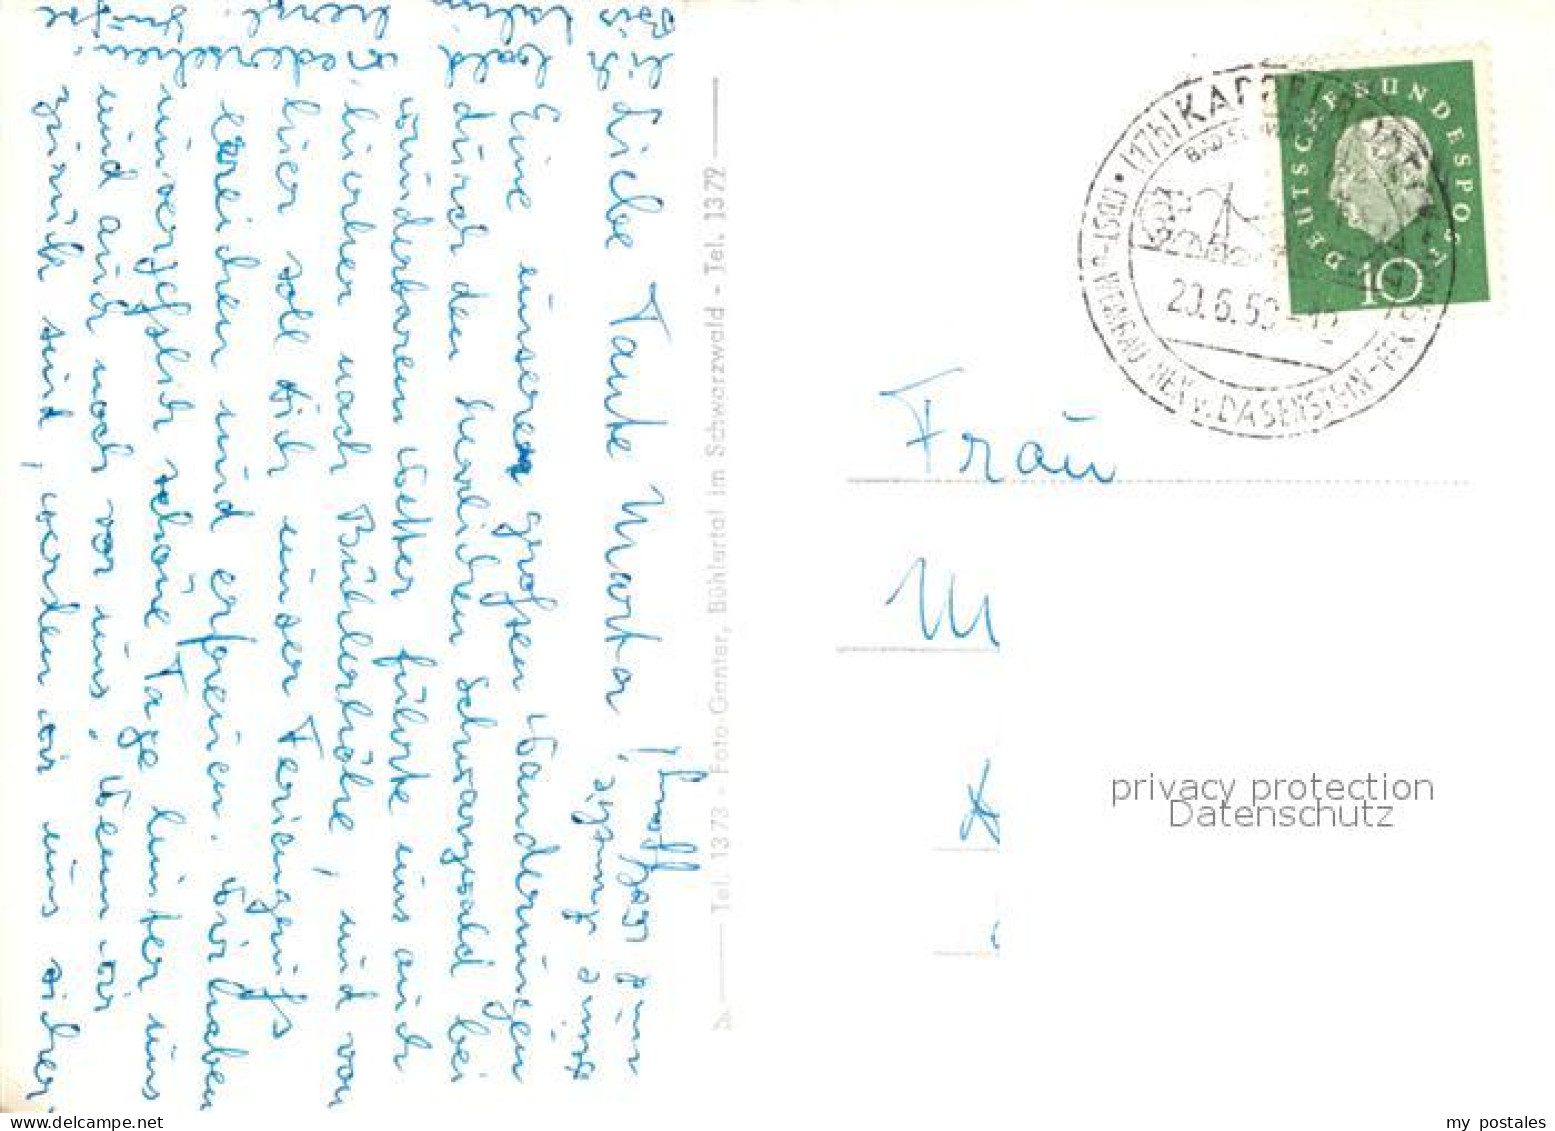 Liebe Tante Marta!
Eine unserer großen Wanderungen
durch den herrlichen Schwarzwald bei
wunderbarem Wetter führte uns auch
hierher nach Bühlerhöhe, und von
hier soll Dich unser Feriengruß
erreichen und erfreuen. Wir haben
unvergeßlich schöne Tage hinter uns
und auch noch vor uns. Wenn wir
zurück sind, werden wir uns sicher
lich bald wiedersehen.
Bis dahin herzl. Grüße
Tel. 1373 - Foto-Ganter, Bühlertal im Schwarzwald - Tel. 1379
(17b) KAPPELRODECK
OBST- u. WEINBAU - HEX v. DASENSTEIN -
20.6.59
DEUTSCHE BUNDESPOST
10
Frau
M
privacy protection
Datenschutz
my postales